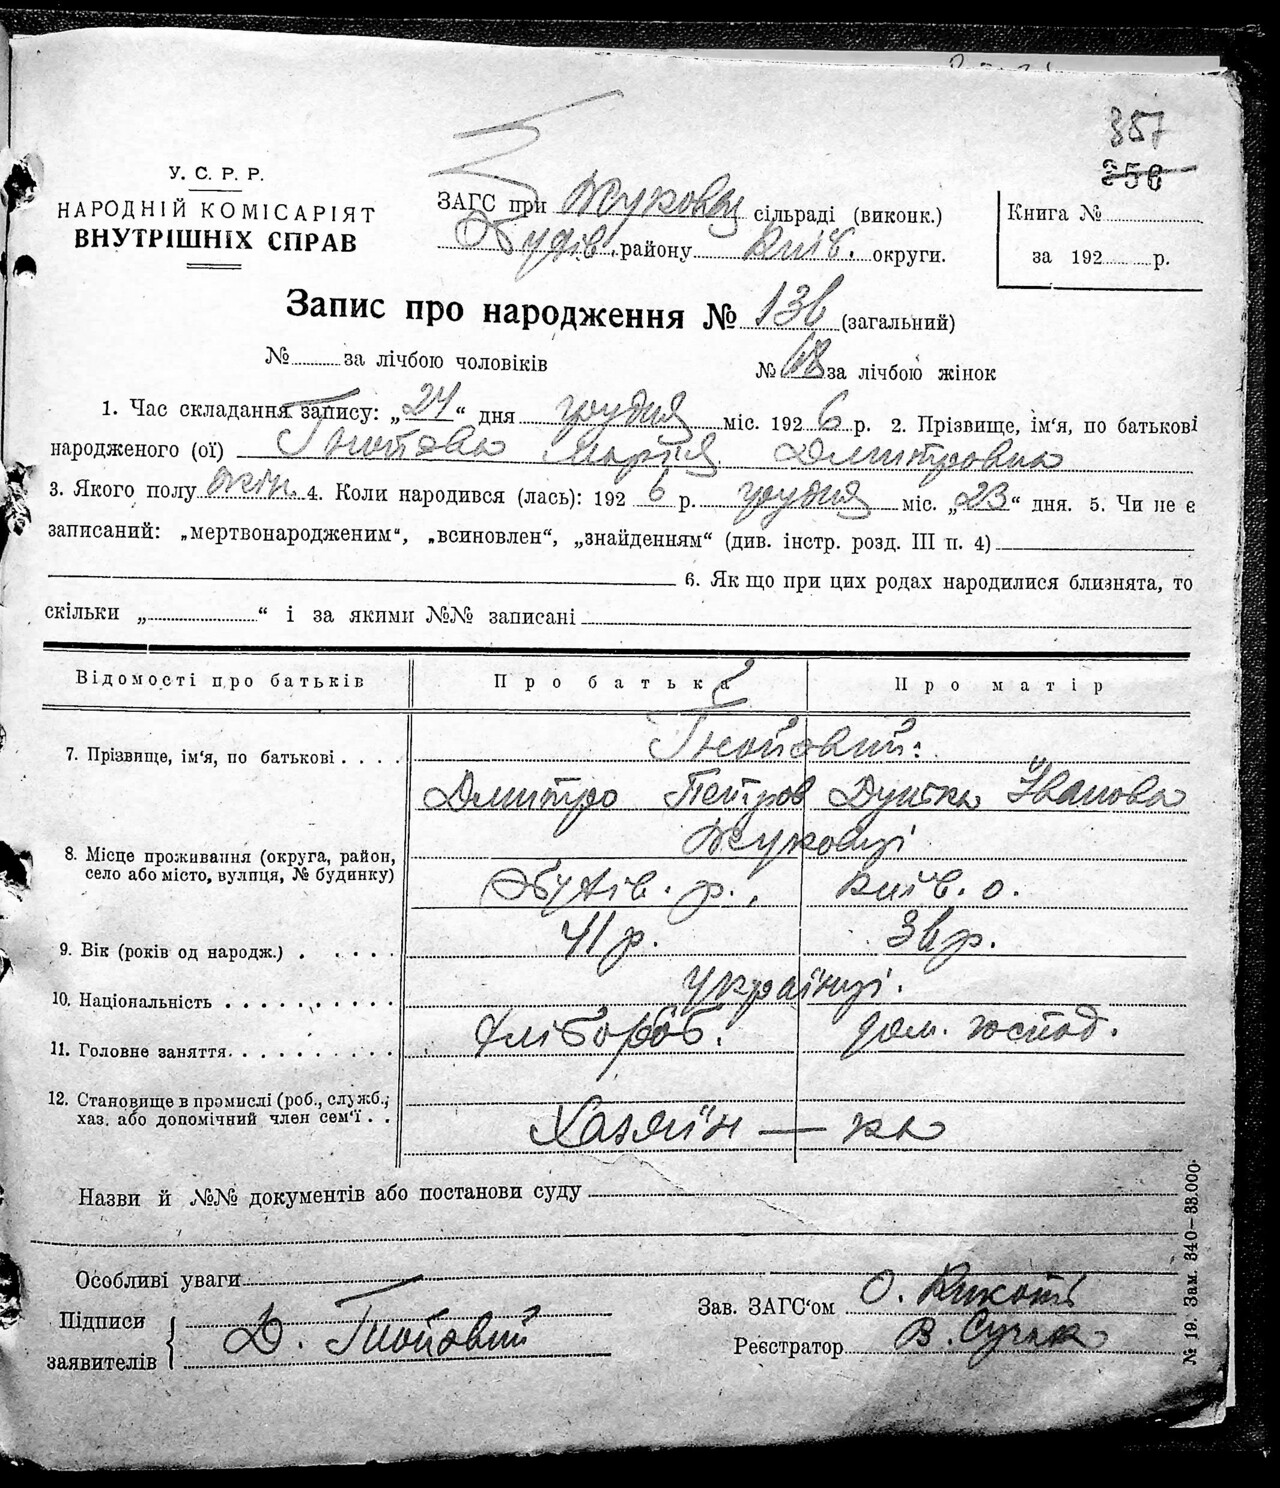 357
256
У. С. Р. Р.
НАРОДНІЙ КОМІСАРІЯТ
ВНУТРІШНІХ СПРАВ
ЗАГС при Жуковец сільраді (виконк.)
Обухів. району Київ. округи.
Книга №
за 192 р.
Запис про народження № 136 (загальний)
№ за лічбою чоловіків
№ 68 за лічбою жінок
1. Час складання запису: „24“ дня грудня міс. 1926 р. 2. Прізвище, ім‘я, по батькові
народженого (ої) Гнойова Марія Дмитровна
3. Якого полу жін. 4. Коли народився (лась): 1926 р. грудня міс. „23“ дня. 5. Чи не є
записаний: „мертвонародженим“, „всиновлен“, „знайденням“ (див. інстр. розд. III п. 4)
6. Як що при цих родах народилися близнята, то
скільки „ “ і за якими №№ записані
Відомості про батьків Про батька Про матір
7. Прізвище, ім‘я, по батькові . . . . Гнойовий:
Дмитро Петров Дунька Іванова
8. Місце проживання (округа, район, Жуковці
село або місто, вулиця, № будинку) Обухів. р., Київ. о.
9. Вік (років од народж.) . . . . . 41 р. 36 р.
10. Національність . . . . . . . . . . Українці.
11. Головне заняття. . . . . . . . . . . Хлібороб. дом. господ.
12. Становище в промислі (роб., служб.,
хаз. або допомічний член сем‘ї . . Хазяїн — ка
Назви й №№ документів або постанови суду
Особливі уваги
Підписи
заявителів Д. Гнойовий
Зав. ЗАГС‘ом О.
Реєстратор В.
№ 19. Зам. 340—33.000.